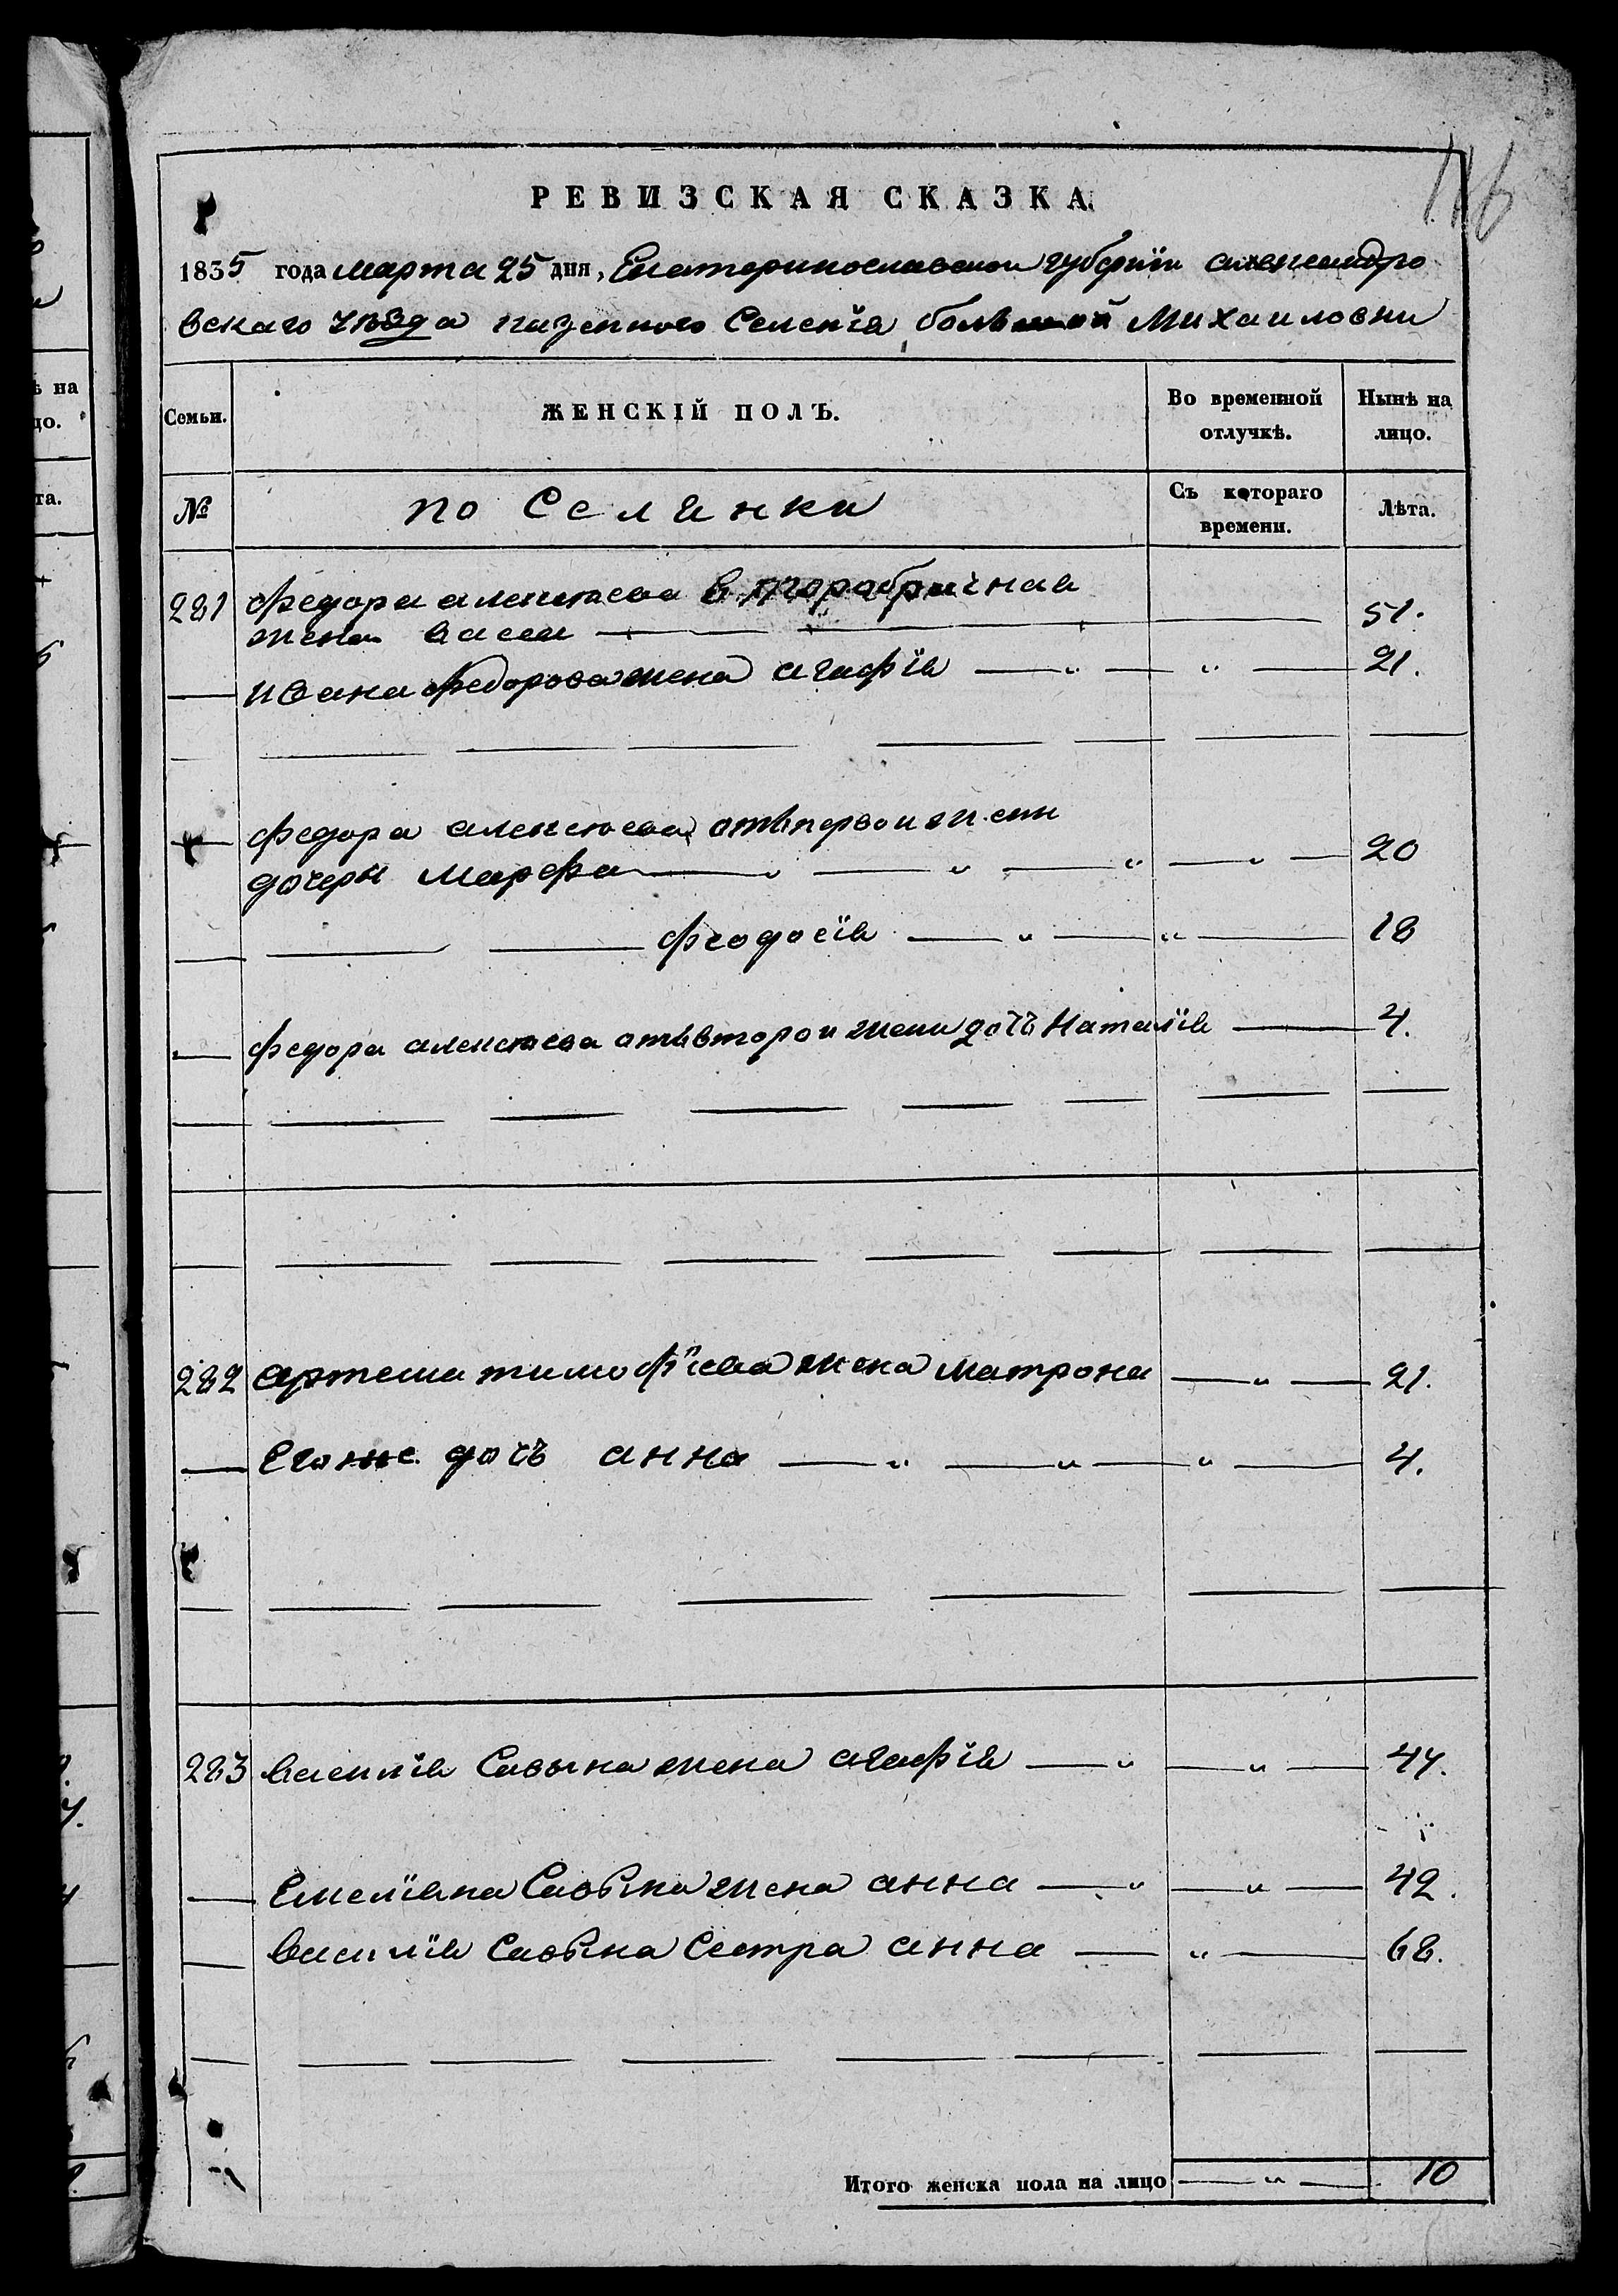 116
РЕВИЗСКАЯ СКАЗКА.
1835 года марта 25 дня, Екатеринославской губернїи александро
вскаго уѣзда казенного Селенїя большой Михаиловки
Семьи.
ЖЕНСКІЙ ПОЛЪ.
Во временной отлучкѣ.
Нынѣ на лицо.
№
поселянки
Съ котораго времени.
Лѣта.
281 Федора алексѣева второбрачная
жена васса 51.
ивана федорова жена агафїя 21.
Федора алексѣева отъ первой жены
дочери марфа 20
феодосїя 18
федора алексѣева отъ второй жены дочь Наталїя 4.
282 артема тимофїева жена матрона 21.
Егоже дочь анна 4.
283 василїя Савына жена агафїя 44.
Емелїяна Савына жена анна 42.
василїя Савына Сестра анна 68.
Итого женска пола на лицо 10